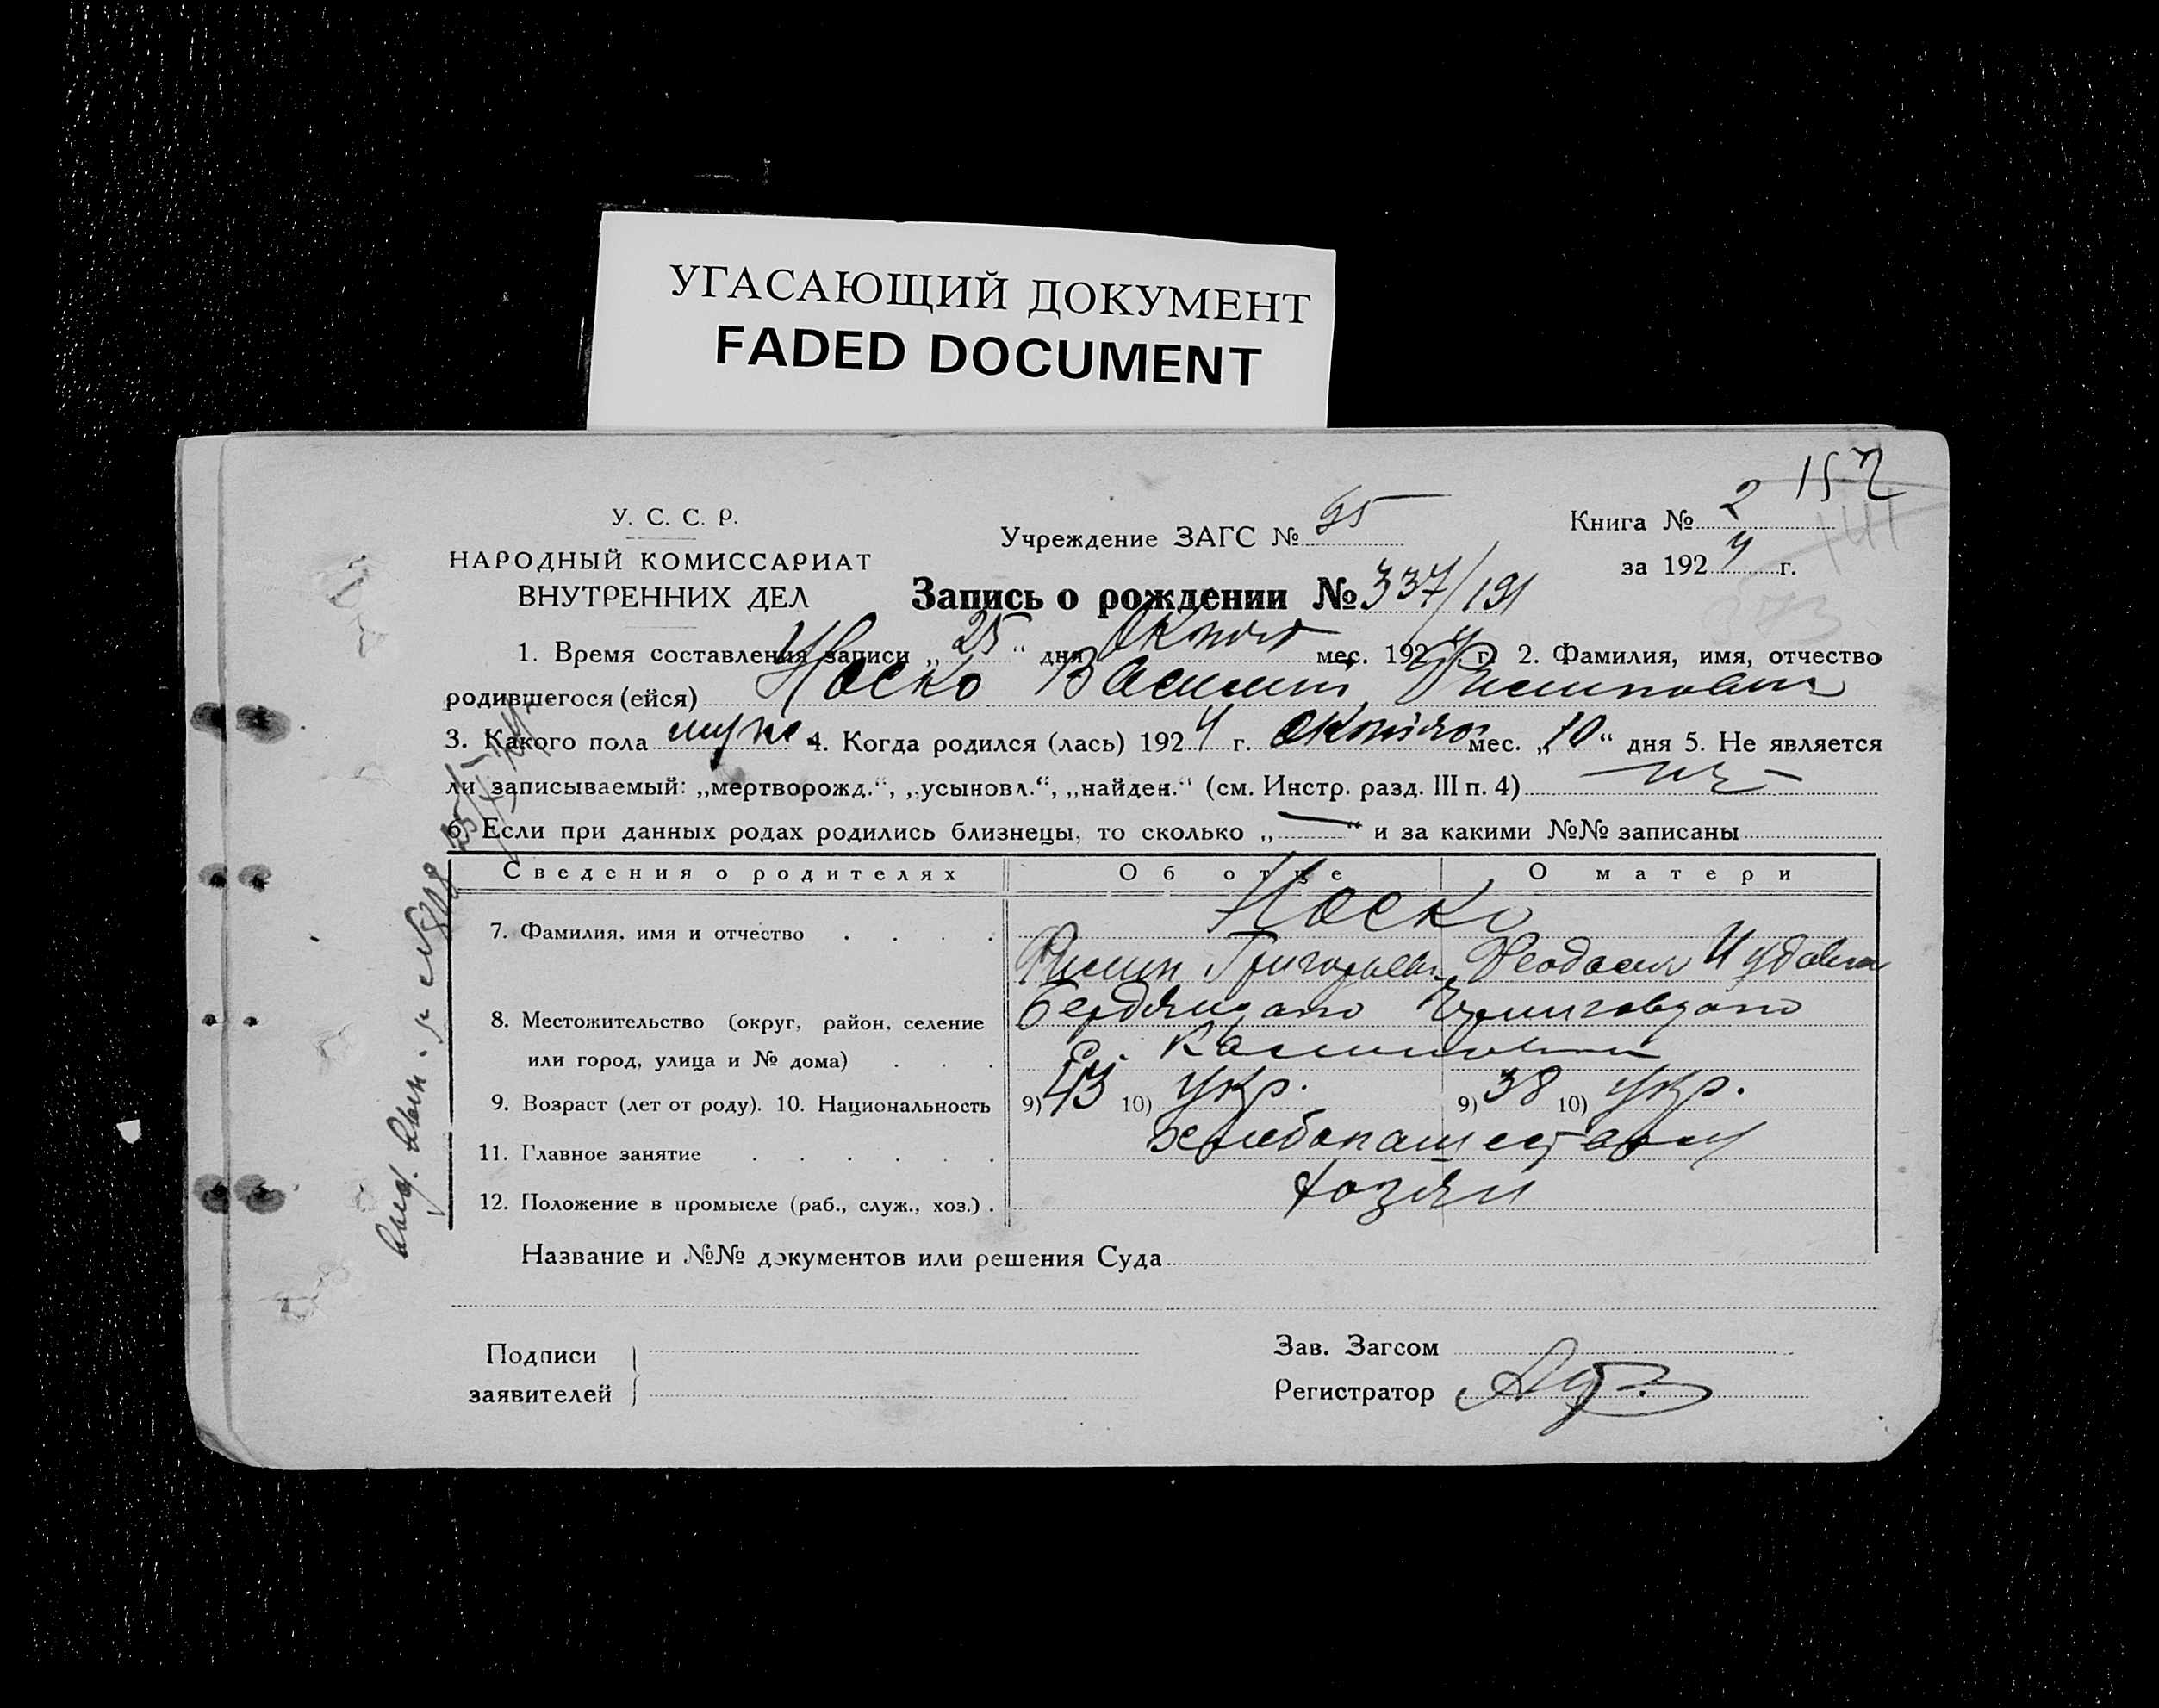 УГАСАЮЩИЙ ДОКУМЕНТ
FADED DOCUMENT
157
У. С. С. Р.
НАРОДНЫЙ КОМИССАРИАТ
ВНУТРЕННИХ ДЕЛ
Учреждение ЗАГС № 95
Книга № 2
за 1924 г.
Запись о рождении № 337/191
1. Время составления записи „25“ дня Октяб мес. 1924 г. 2. Фамилия, имя, отчество
родившегося (ейся) Носко Василий Филипович
3. Какого пола муж. 4. Когда родился (лась) 1924 г. Октября мес. „10“ дня 5. Не является
ли записываемый: „мертворожд.“, „усыновл.“, „найден.“ (см. Инстр. разд. III п. 4)
6. Если при данных родах родились близнецы, то сколько „—“ и за какими №№ записаны
Сведения о родителях Об отце О матери
Носко
7. Фамилия, имя и отчество
Филип Григорьев. Феодосия
8. Местожительство (округ, район, селение Бердянского Черниговского
или город, улица и № дома) С.
9. Возраст (лет от роду). 10. Национальность 9) 43 10) укр. 9) 38 10) укр.
11. Главное занятие хлебопашество
12. Положение в промысле (раб., служ., хоз.) хозяин
Название и №№ документов или решения Суда
Подписи
заявителей
Зав. Загсом
Регистратор